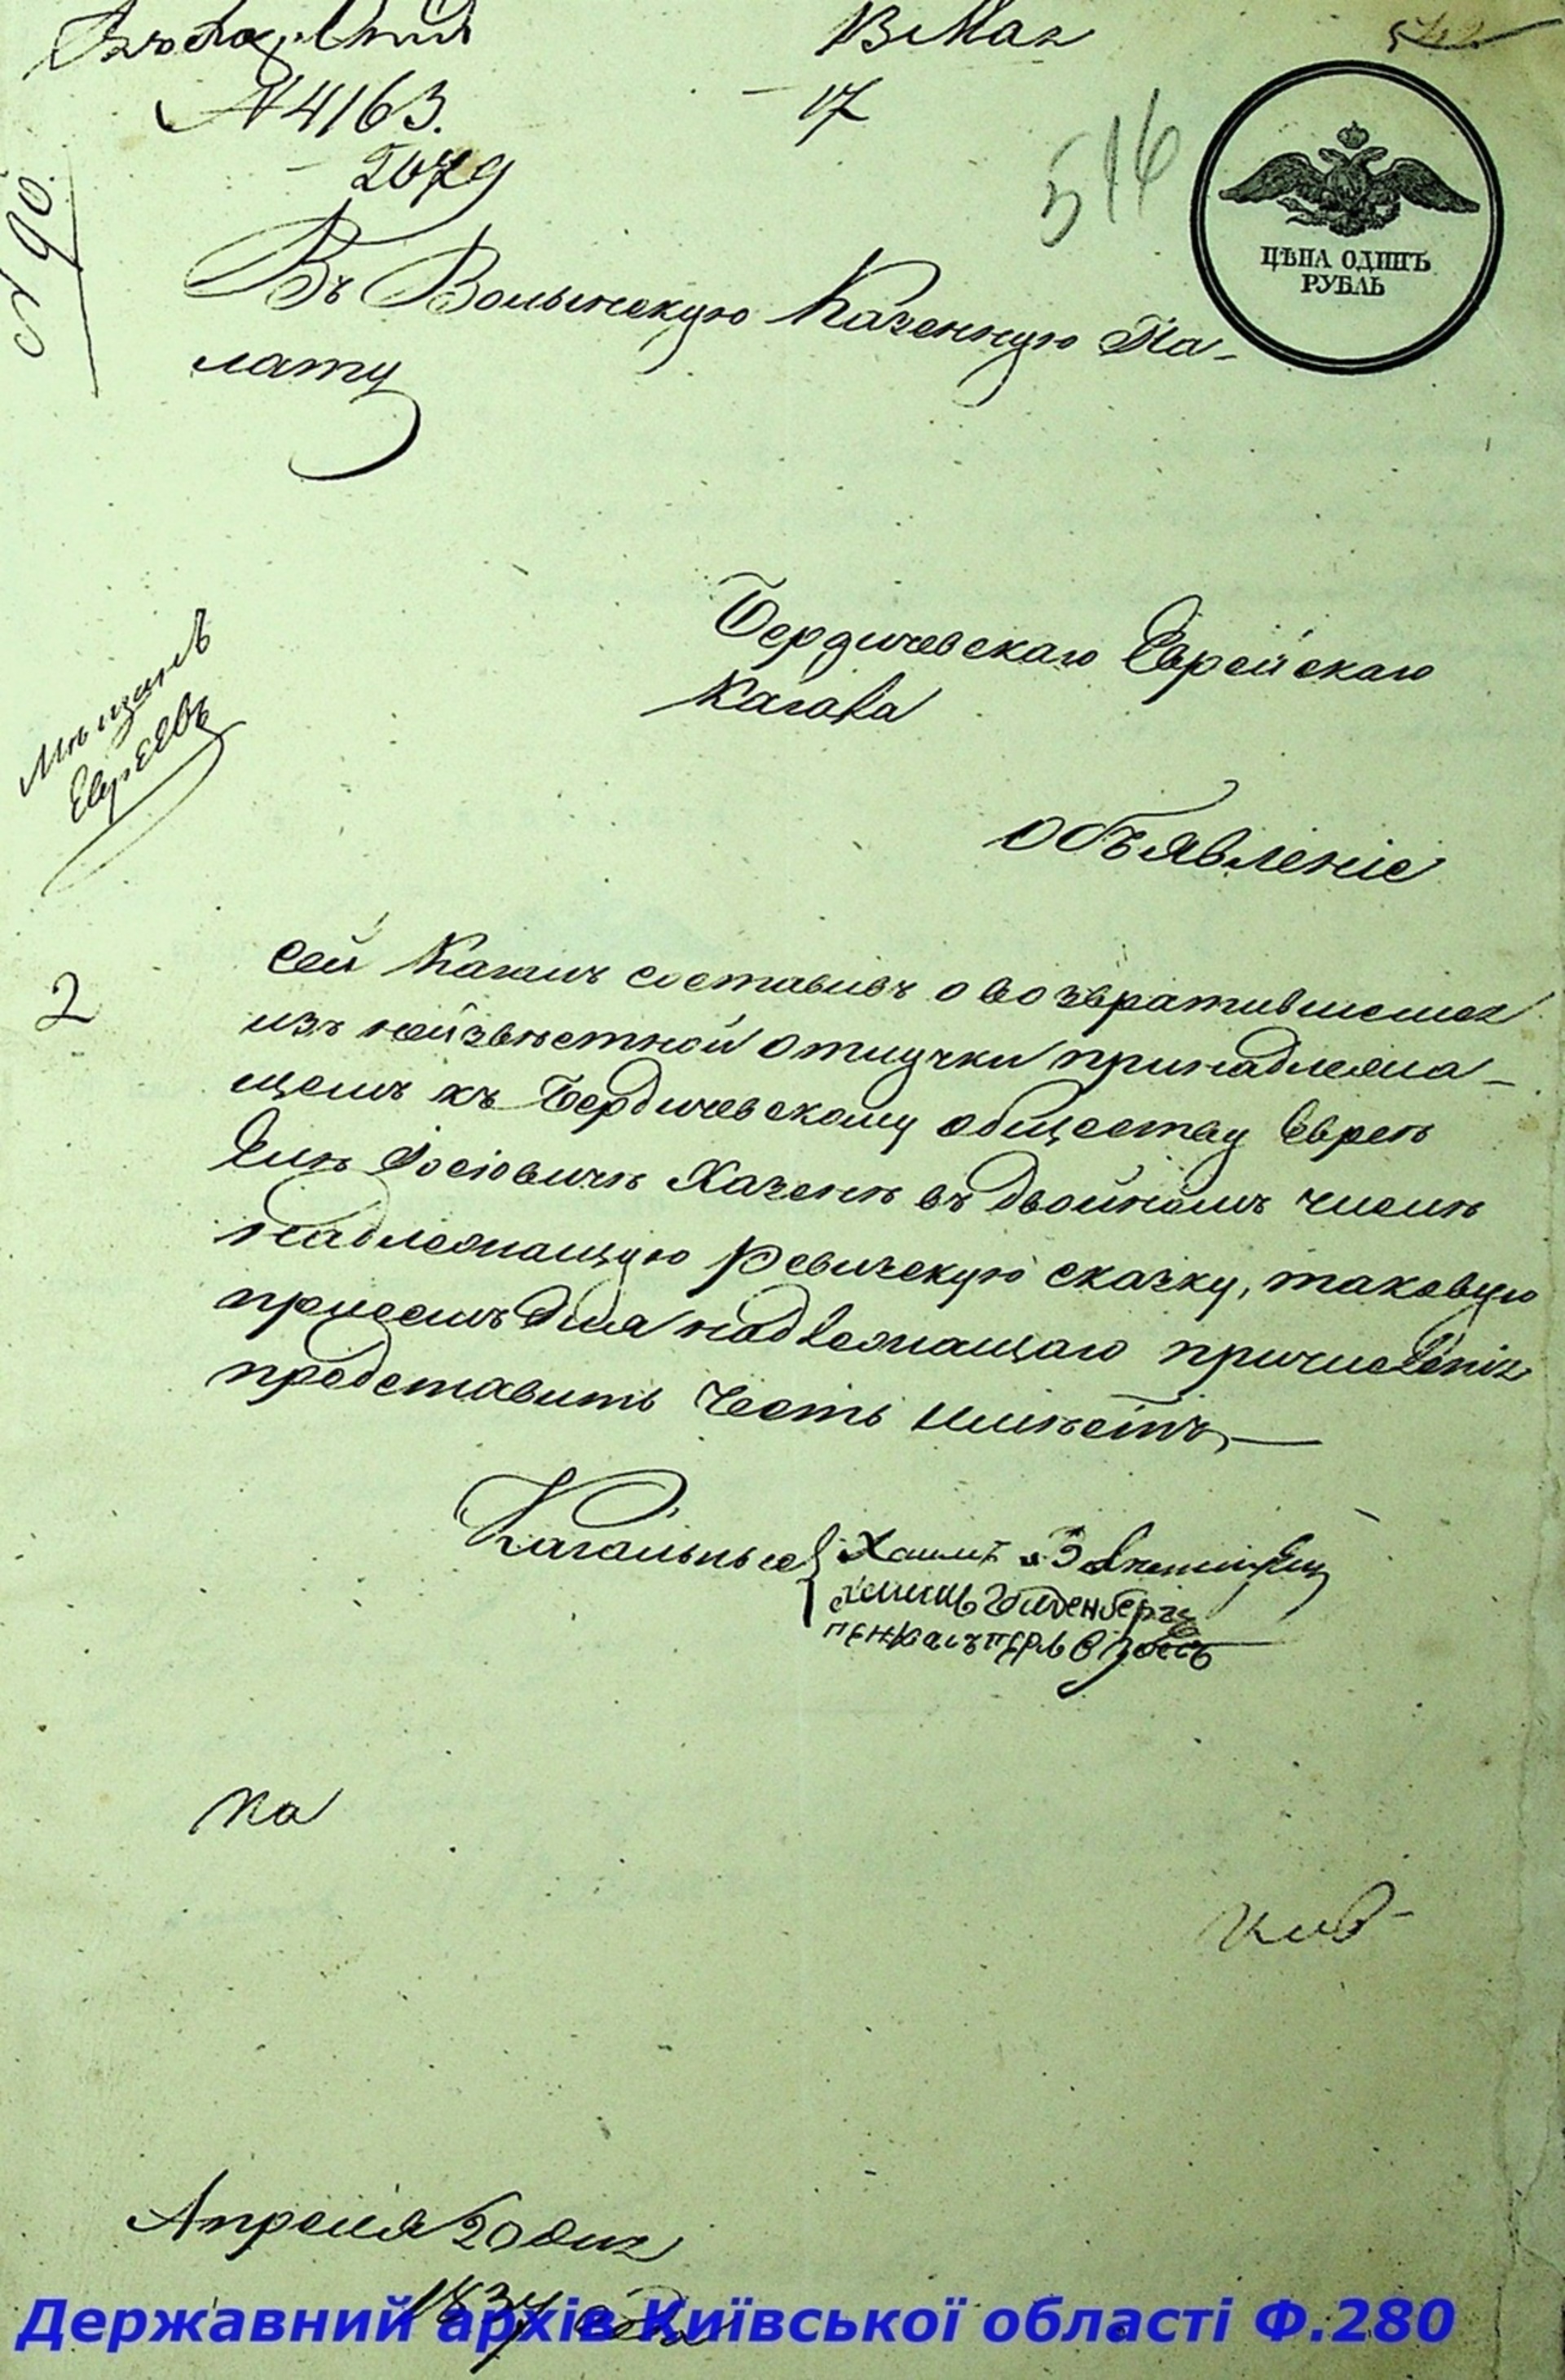 13 Мая
17
№ 4163.
2079
516
№ 90.
ЦѢНА ОДИНЪ
РУБЛЬ
Въ Волынскую Казенную Па-
лату
Бердичевскаго Еврейскаго
Кагала
Мѣщанъ
Евреевъ
объявленіе
2
Сей Кагалъ составивъ о возвратившемся
изъ неизвѣстной отлучки принадлежа-
щемъ къ Бердичевскому обществу Евреѣ
Іосіовичѣ Хазенѣ въ двойномъ числѣ
надлежащую Ревизскую сказку, таковую
при семъ для надлежащаго причисленія
представить честь имѣетъ,
Кагальные
Апреля 20 дня
1834 года
Державний архів Київської області Ф.280